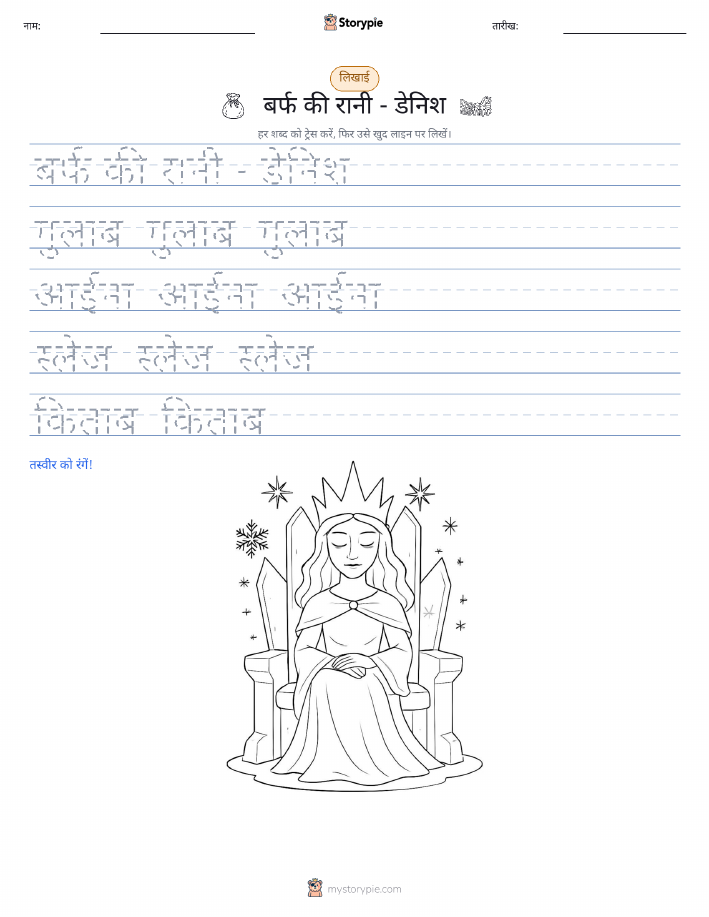 नाम: Storypie तारीख:
लिखाई
बर्फ की रानी - डेनिश
हर शब्द को ट्रेस करें, फिर उसे खुद लाइन पर लिखें।
बर्फ की रानी - डेनिश
गुलाब गुलाब गुलाब
आईना आईना आईना
स्लेज स्लेज स्लेज
किताब किताब
तस्वीर को रंगें!
mystorypie.com